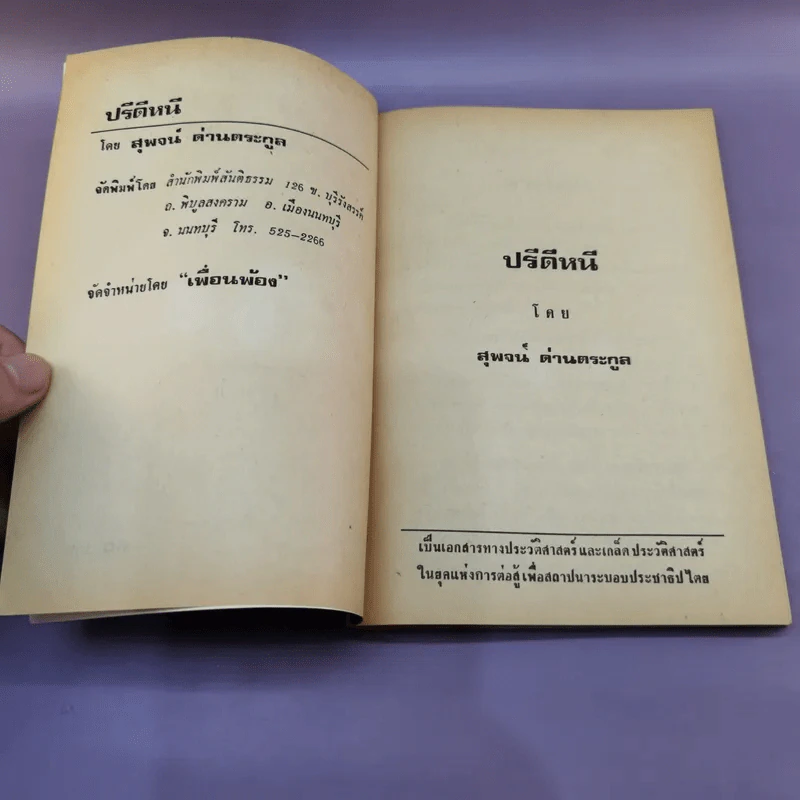 ปรีดีหนี
โดย สุพจน์ ด่านตระกูล
จัดพิมพ์โดย สำนักพิมพ์สันติธรรม 126 ซ. บุรีรังสรรค์
ถ. พิบูลสงคราม อ. เมืองนนทบุรี
จ. นนทบุรี โทร. 525-2266
จัดจำหน่ายโดย "เพื่อนพ้อง"
ปรีดีหนี
โดย
สุพจน์ ด่านตระกูล
เป็นเอกสารทางประวัติศาสตร์ และเกล็ดประวัติศาสตร์
ในยุคแห่งการต่อสู้ เพื่อสถาปนาระบอบประชาธิปไตย